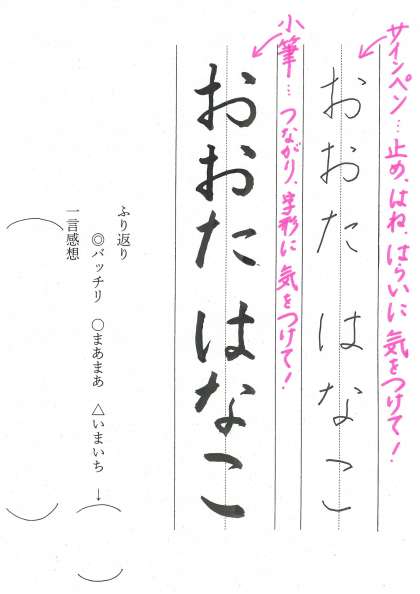 サインペン…止め、はね、はらいに気をつけて!
おおた はなこ
小筆…つながり、字形に気をつけて!
おおた はなこ
ふり返り
◎バッチリ ○まあまあ △いまいち → ( )
一言感想
( )